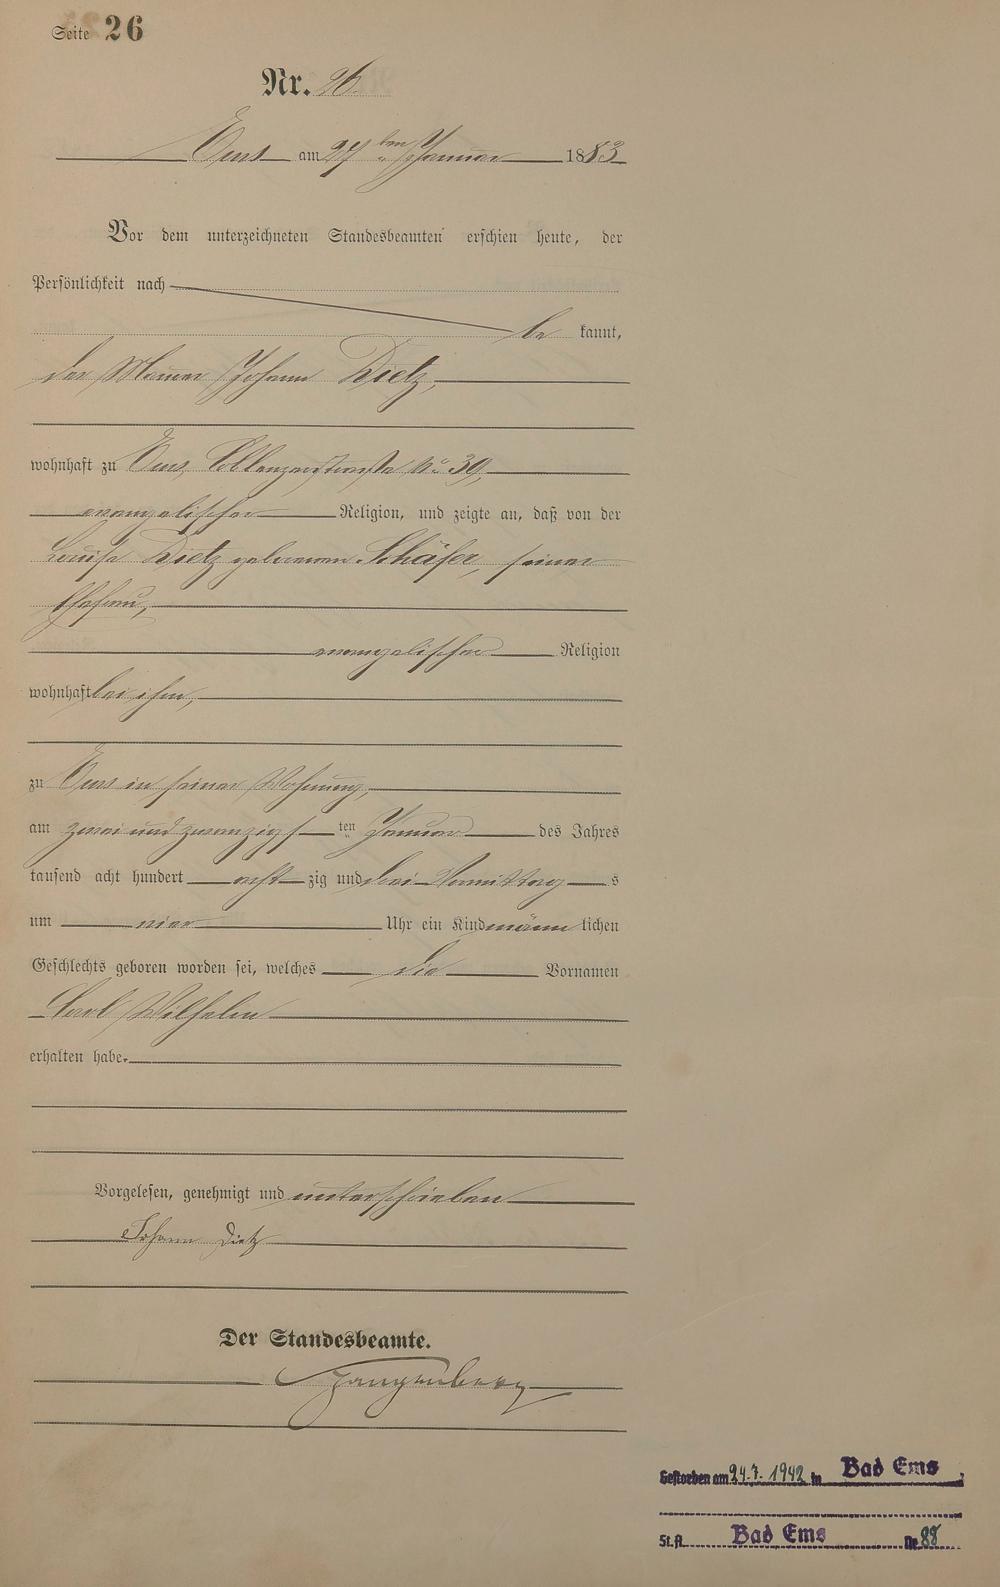 Seite 26
Nr. 26.
Ems am 27ten Januar 1883
Vor dem unterzeichneten Standesbeamten erschien heute, der
Persönlichkeit nach
be kannt,
der Maurer Johann Dietz,
wohnhaft zu Ems, Coblenzerstraße No 39,
evangelischer Religion, und zeigte an, daß von der
Louise Dietz geborenen Schäfer, seiner
Ehefrau,
evangelischer Religion
wohnhaft bei ihm,
zu Ems in seiner Wohnung,
am zwei und zwanzigsten Januar des Jahres
tausend acht hundert achtzig und drei Vormittags
um vier Uhr ein Kind männlichen
Geschlechts geboren worden sei, welches die Vornamen
Carl Wilhelm
erhalten habe.
Vorgelesen, genehmigt und unterschrieben
Johann Dietz
Der Standesbeamte.
Gestorben am 24.7. 1942 in Bad Ems
St. A. Bad Ems Nr. 88